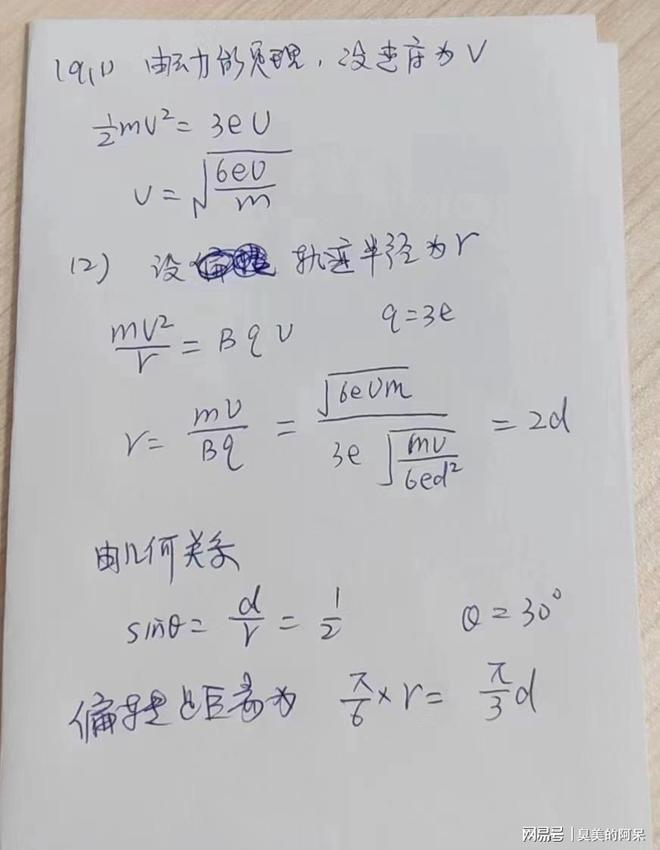 19,(1) 由动能原理,设速度为V
½mv²= 3eU
v=√(6eU/m)
(2) 设 轨迹半径为r
mv²/r = Bqv q=3e
r= mv/Bq = √(6eUm)/(3e√(mU/6ed²)) =2d
由几何关系
sinθ= d/r = 1/2 θ=30°
偏转距离为 π/6×r= π/3 d
网易号 | 臭美的阿呆